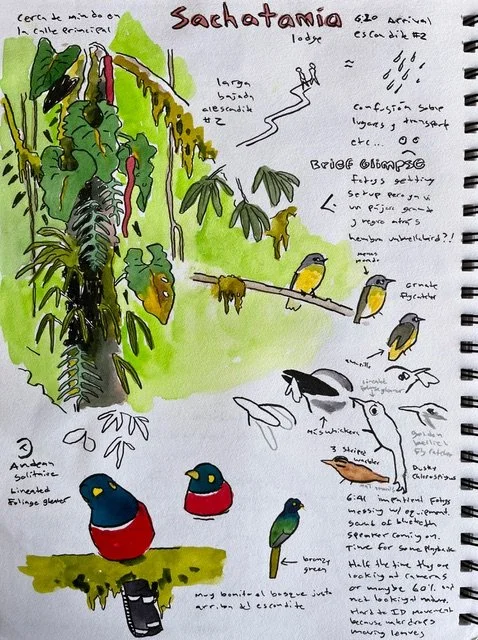 cerca de mindo en
la calle principal
Sachatamia
lodge
6:20 Arrival
escondite #2
larga
bajada
al escondite
#2
≈
confusión sobre
lugares y transport
etc...
Brief Glimpse
Fotogs getting
setup pero ya vi
un pájaro grande
y negro atrás
hembra umbrellabird?!
menos
ornate
flycatcher
amarillo
Lineated
foliage gleaner
golden
bellied
Flycatcher
3 striped
warbler
Dusky
Andean
Solitaire
Lineated
Foliage gleaner
bronzy
green
muy bonito el bosque justo
arriba del escondite
6:41 impatient Fotogs
messing w/ equipment.
sound of bluetooth
speaker coming on.
Time for some playback
Half the time they are
looking at cameras
or maybe 60% and
not looking at nature.
Hard to ID movement
because water drops
moving leaves